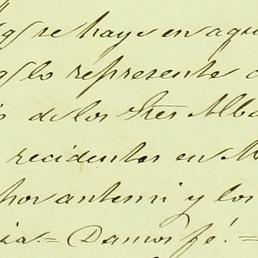 q̃ se haya en aqu
q̃ lo represente
de los Sres Alba
recidentes en M
por antemi y los
cia.= Damos fé.=